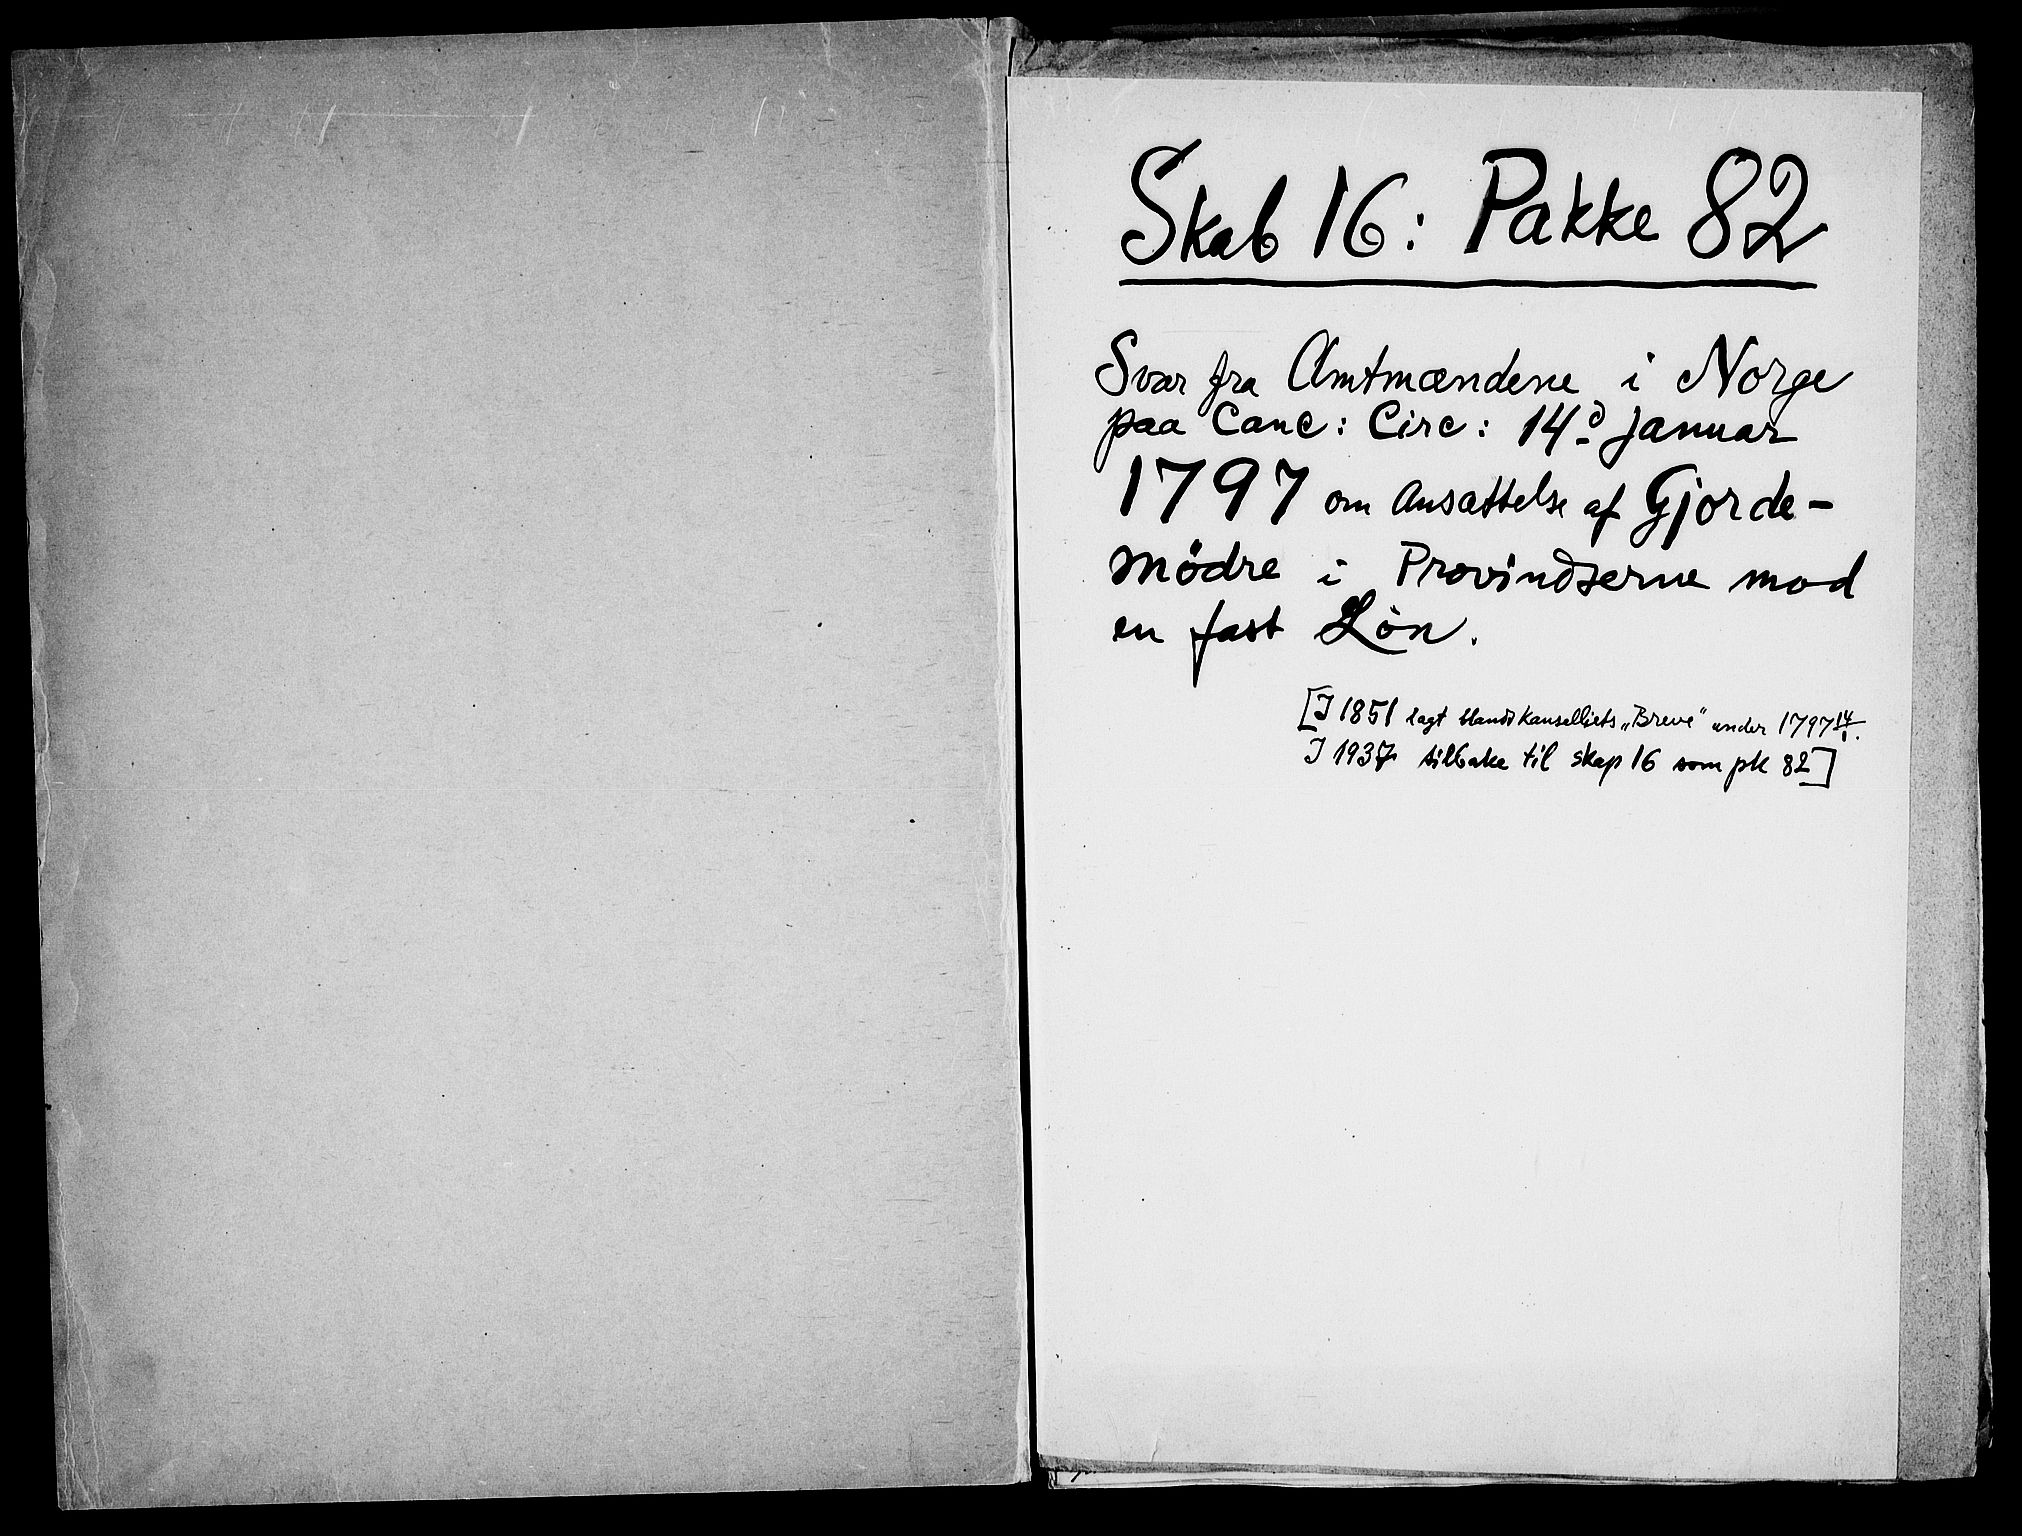 Skab 16: Pakke 82
Svar fra Amtmændene i Norge
paa Canc: Circ: 14d Januar
1797 om Ansættelse af Gjorde-
mödre i Provindserne mod
en fast Løn.
[I 1851 lagt blandt kanselliets „Breve" under 1797 14/1.
I 1937 tilbake til skap 16 som pk 82]